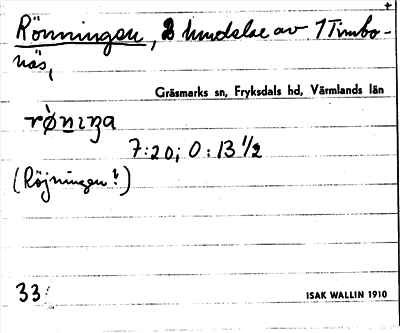 Rönningen, 2 lundelar av 1 Timbo-
näs,
Gräsmarks sn, Fryksdals hd, Värmlands län
7:20; 0:13 1/2
(Röjningen?)
33
ISAK WALLIN 1910